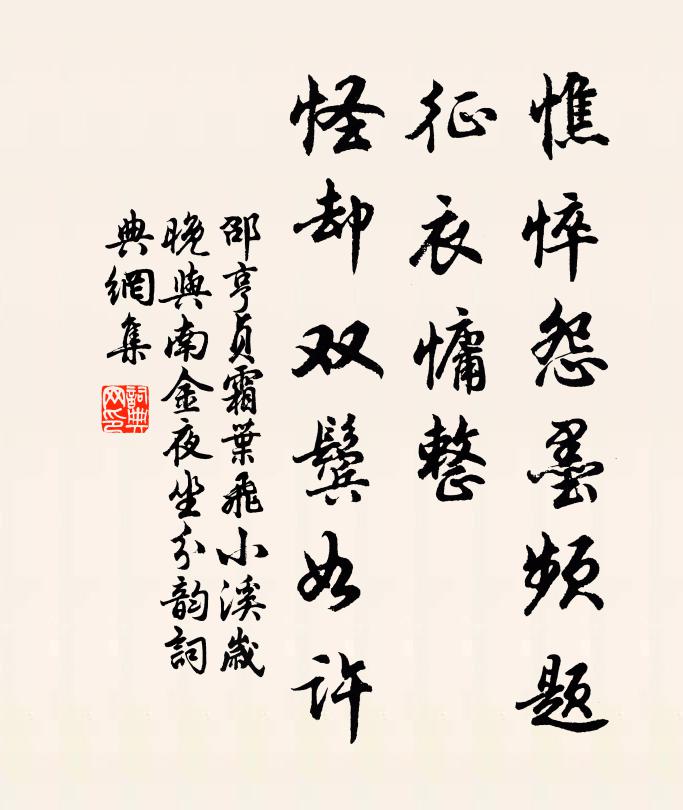 憔悴怨墨频题
征衣慵整
怪却双鬓如许
邵亨贞霜葉飛小溪歲
晚與南金夜坐分韵詞
典網集
詞典
网印